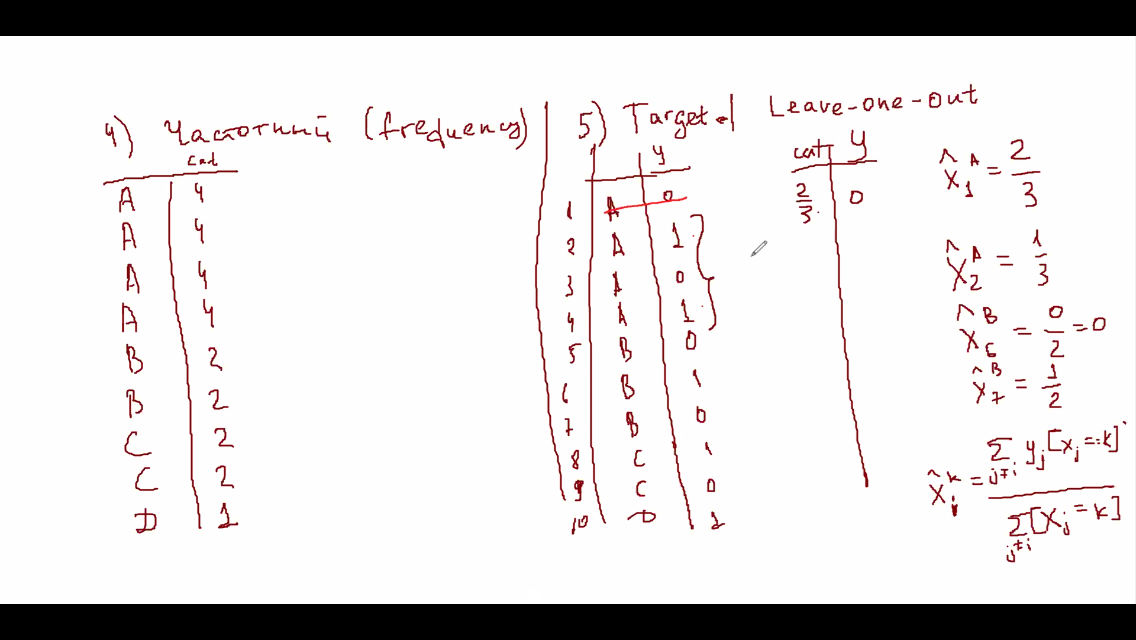 4) Частотный (frequency)
cat
A 4
A 4
A 4
A 4
B 2
B 2
C 2
C 2
D 1
5) Target Leave-one-out
y
1 A 0
2 A 1
3 A 0
4 A 1
5 B 0
6 B 1
7 B 0
8 C 1
9 C 0
10 D 1
cat y
2/3 0
x̂₁ᴬ = 2/3
x̂₂ᴬ = 1/3
x̂₆ᴮ = 0/2 = 0
x̂₇ᴮ = 1/2
x̂ᵢᵏ = Σ_{j≠i} yⱼ[xⱼ = k] / Σ_{j≠i} [xⱼ = k]